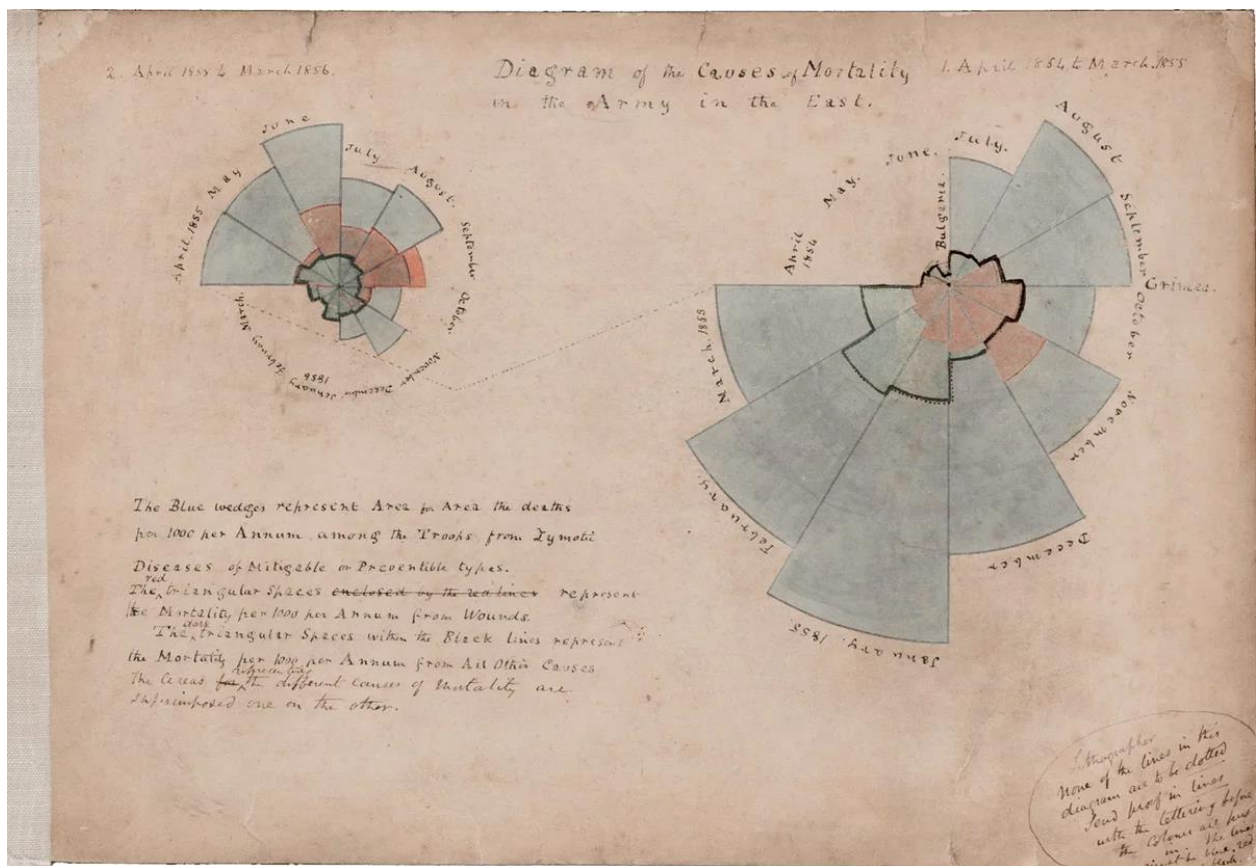 2. April 1855 to March 1856.
Diagram of the Causes of Mortality
in the Army in the East.
1. April 1854, to March. 1855
June
July
August.
September
October.
November
December
January
1856
February
March.
April. 1855
May
April
1854
May.
June.
July.
August
September
October
November
December
January. 1855.
February.
March. 1855
Bulgaria
Crimea.
The Blue wedges represent Area for Area the deaths
per 1000 per Annum among the Troops from Zymotic
Diseases of Mitigable or Preventible types.
red
The triangular Spaces enclosed by the red lines represent
the Mortality per 1000 per Annum from Wounds.
dark
The triangular Spaces within the Black lines represent
the Mortality per 1000 per Annum from All Other Causes
representing
The Areas for the different Causes of Mortality are
Superimposed one on the other.
Lithographer
None of the lines in this
diagram are to be dotted
Send proof in lines
with the lettering before
the Colours are put
in The lines
must be blue, red